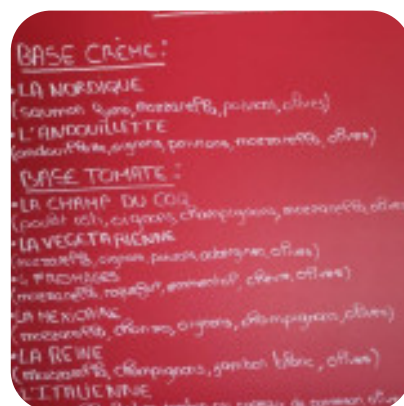 BASE CRÈME:
• LA NORDIQUE
(saumon fumé, mozzarella, poivrons, olives)
• L'ANDOUILLETTE
(andouillette, oignons, poivrons, mozzarella, olives)
BASE TOMATE:
• LA CHAMP DU COQ
(poulet roti, oignons, champignons, mozzarella, olives
• LA VEGETARIENNE
(mozzarella, oignons, poivrons, aubergines, olives)
FROMAGES
(mozzarella, roquefort, emmental, chèvre, olives)
• LA MEXICAINE
(mozzarella, chorizo, oignons, champignons, olives)
• LA REINE
(mozzarella, champignons, jambon blanc, olives)
• L'ITALIENNE